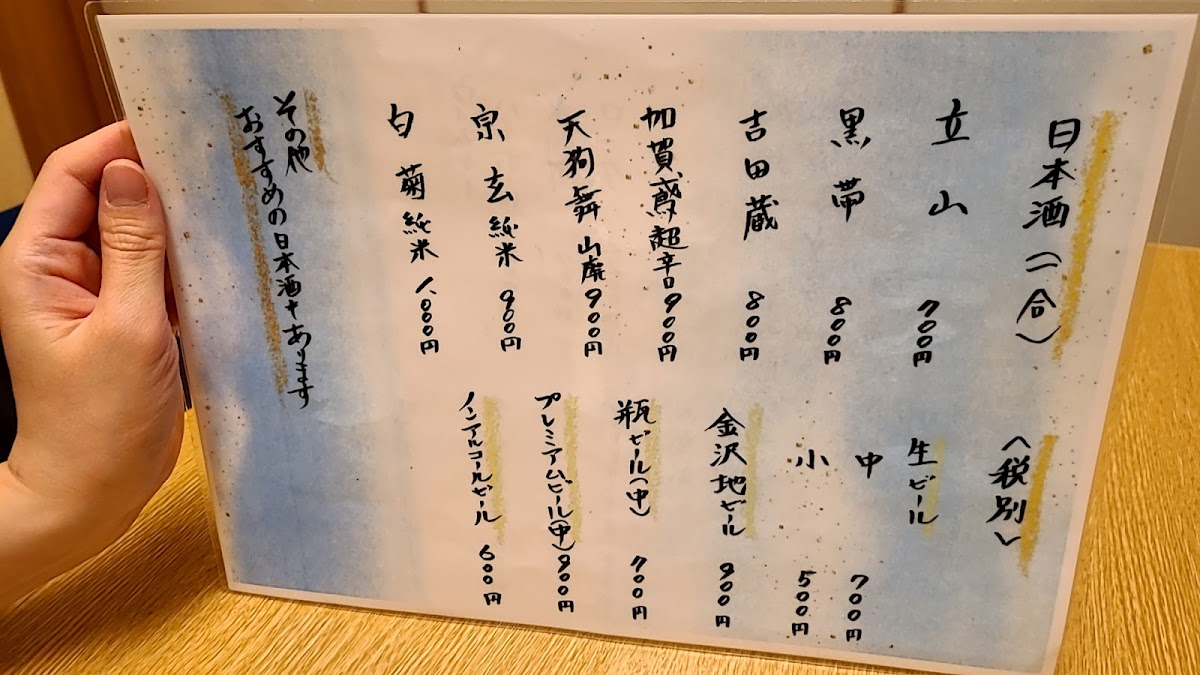 日本酒(一合)
立山 700円
黒帯 800円
吉田蔵 800円
加賀鳶超辛口 900円
天狗舞山廃 900円
宗玄純米 900円
白菊純米 1,000円
その他
おすすめの日本酒もあります
<税別>
生ビール
中 700円
小 500円
金沢地ビール 900円
瓶ビール(中) 700円
プレミアムビール(中) 900円
ノンアルコールビール 600円